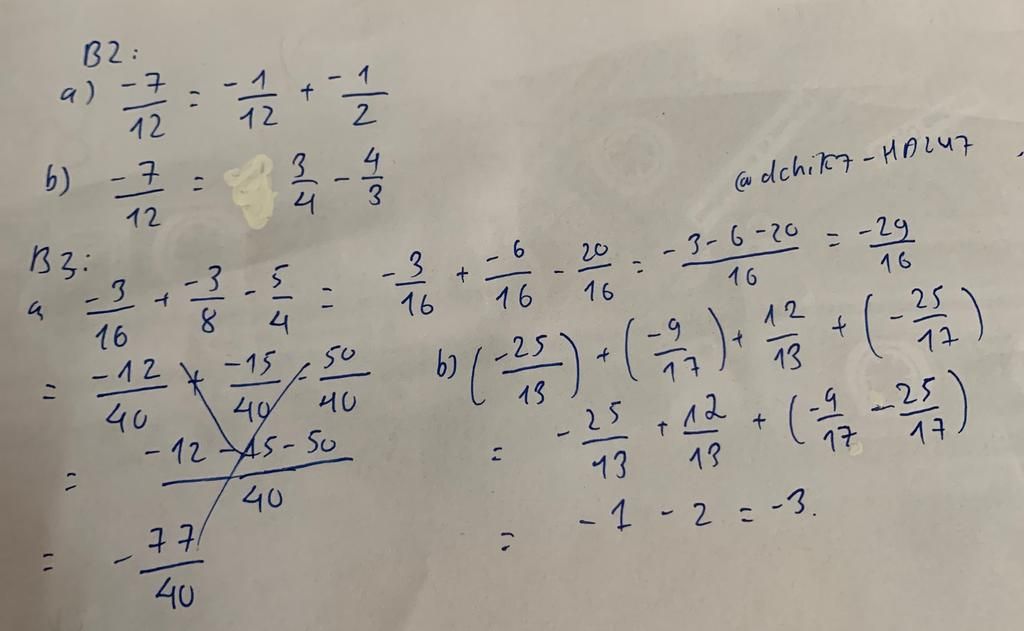 B2:
a) -7/12 = -1/12 + -1/2
b) -7/12 = 3/4 - 4/3
B3:
a, -3/16 + -3/8 - 5/4 = -3/16 + -6/16 - 20/16 = -3-6-20/16 = -29/16
= -12/40 + -15/40 - 50/40
= -12-15-50/40
= -77/40
b) (-25/13) + (-9/17) + 12/13 + (-25/17)
= -25/13 + 12/13 + (-9/17 - 25/17)
= -1 - 2 = -3.